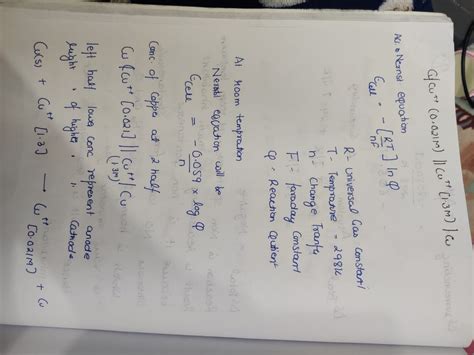 Cu/Cu⁺⁺ (0.021M) || Cu⁺⁺ (1.3M) | Cu
Nernst equation
Ecell = - [RT/nF] ln φ
R - Universal Gas constant
T - Temprature - 298K
n - Change Tranfer
F - faraday Constant
φ - Reaction Qutient
At Room tempration
Nernst equation will be
Ecell = -0.059/n × log φ
Conc of Copper at 2 half
Cu | Cu⁺⁺ [0.021] || Cu⁺⁺ (1.3M) | Cu
left half lower conc represent anode
Right " of higher " " Cathode
Cu(s) + Cu⁺⁺ [1.3] → Cu⁺⁺ [0.021M] + Cu